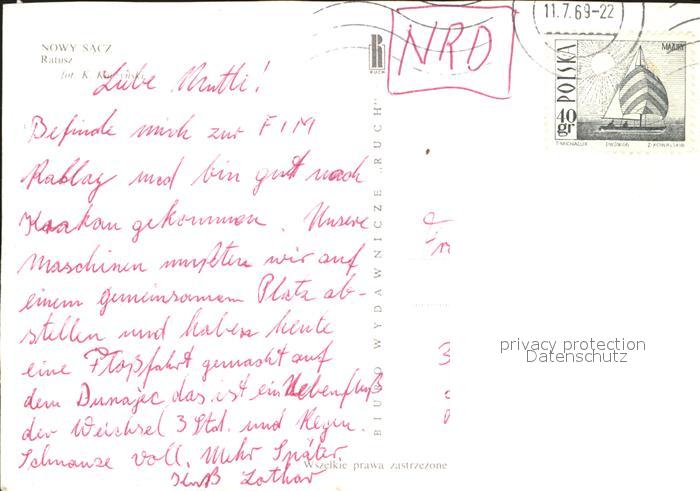 NOWY SĄCZ
Ratusz
fot. K.
RUCH
NRD
11.7.69-22
POLSKA
MAZURY
40 gr
T. MICHALUK DWZNK66 Z. KOWALSKI
Liebe Mutti!
Befinde mich zur FIM
Rallay und bin gut nach
Krakau gekommen. Unsere
Maschinen mußten wir auf
einem gemeinsamen Platz ab-
stellen und haben heute
eine Floßfahrt gemacht auf
dem Dunajec das ist ein Nebenfluß
der Weichsel 3 Std. und Regen.
Schnauze voll. Mehr Später.
Gruß Lothar
BIURO WYDAWNICZE „RUCH"
Wszelkie prawa zastrzeżone
privacy protection
Datenschutz